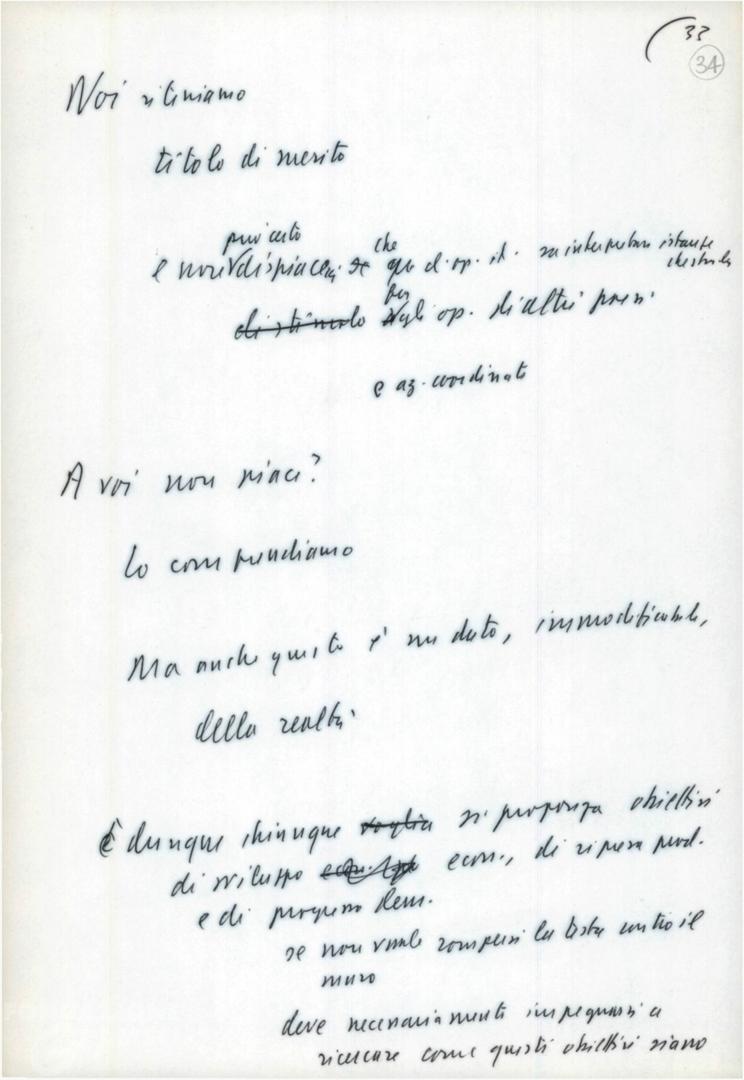 33
34
Noi riteniamo
titolo di merito
può certo
che
e non dispiacerci se qu d. op. it. sa interpretare istanze
che stanno
per
di stimolo agli op. di altri paesi
e az. coordinate
A voi non piace?
Lo comprendiamo
Ma anche questo è un dato, immodificabile,
della realtà
E dunque chiunque voglia si proponga obiettivi
di sviluppo econ., di ripresa prod.
e di progresso dem.
se non vuole rompersi la testa contro il
muro
deve necessariamente impegnarsi a
ricercare come questi obiettivi siano